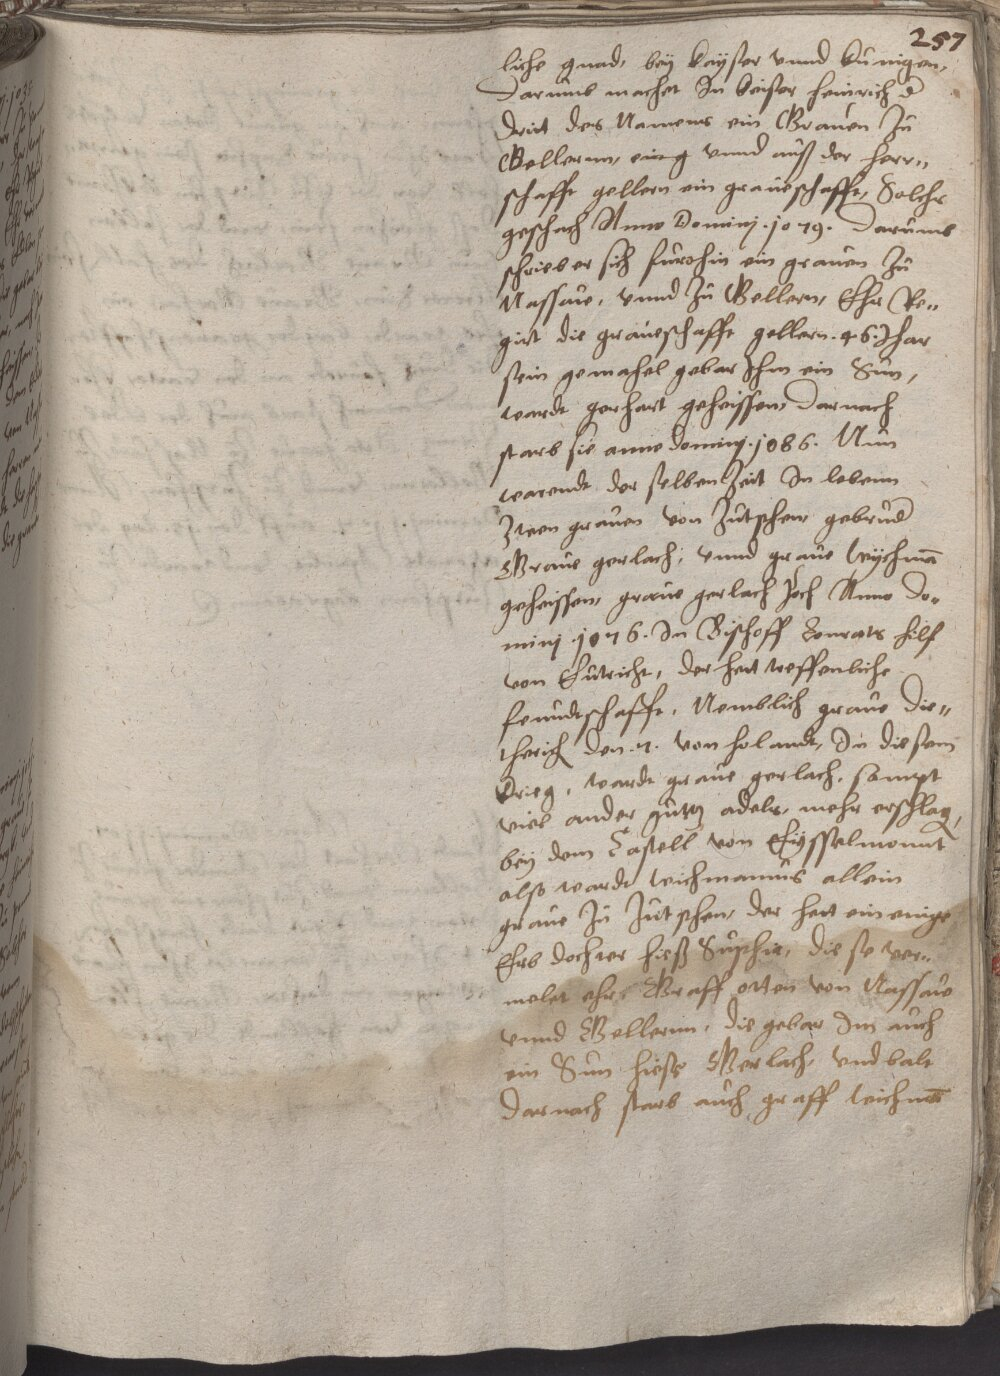 257
liche gnad, beÿ keÿser vnnd kunigen,
Darumb machet In keiser heinrich d
Drit des Namens ein Graven Zu
Gellernn, vnnd auß der herr„
schafft gellern ein graueschafft, Solchs
geschach Anno Dominj .1079. Darumb
schrieb er sich furohin ein grauen Zu
Nassaw, vnnd Zu Gellern, Ehr Re„
girt die graueschafft gellern .46. Jhar
sein gemahel gebar Jhm ein Sun,
wardt gerhart geheissen, Darnach
starb sie anno dominj .1086. Nun
warendt der selben Zeit In lebenn
Zween grauen von Zutphen gebrud
Graue gerlach, vnnd graue Wychman
geheissen, graue gerlach Zoch Anno Do„
minj .1076. In Bischoff Conrats hilf
von Eutricht, der het treffenliche
feindtschafft, Nemblich graue Die„
therich den .4. von holandt, In diesem
krieg, wardt graue gerlach, sampt
viel ander gutz adels, mehr erschlag,
beÿ dem Castell von Eÿsselmonnt
also wardt wichmannus allein
graue Zu Zutphen, der het ein einige
Erb dochter hieß Suphia, die so ver„
melet ehr Graff otten von Nassaw
vnnd Gellernn, die gebar Im auch
ein Sun hieß Gerlach, vnd balt
darnach starb auch graff wichman